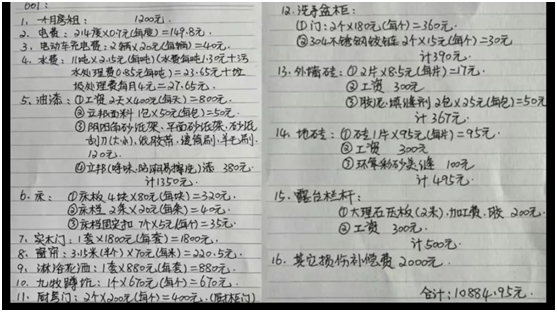 001:
1. 一个月房租: 1200元.
2. 电费: 214度×0.7元(每度)=149.8元.
3. 电动车充电费: 2辆×20元(每辆)=40元.
4. 水费: 11吨×2.15元(每吨)(水费每吨1.30元+污
水处理费0.85元每吨)=23.65元+垃
圾处理费每月4元=27.65元.
5. 油漆: ①工资2天×400元(每天)=800元.
②立邦面料1包×50元(每包)=50元.
③阴阳角砂纸架、平面砂纸架、砂纸
刮刀(大小)、收胶带、滚筒刷、羊毛刷.
120元.
④立邦(哮味、防潮易擦洗)漆 380元.
计1350元.
6. 床: ①床板4块×80元(每块)=320元.
②床档2条×20元(每条)=40元.
③床档固定扣7个×5元(每个)=35元.
7. 实木门: 1套×1800元(每套)=1800元.
8. 窗帘: 3.15米(半个)×70元(每米)=220.5元.
9. 淋浴花洒: 1套×880元(每套)=880元.
10. 九牧蹲坑: 1个×670元(每个)=670元.
11. 厨房门: 2个×200元(每个)=400元.(厨柜门)
12. 洗手盆柜:
①门: 2个×180元(每个)=360元.
②304不锈钢铰链2个×15元(每个)=30元
计390元.
13. 外墙砖: ①2片×8.5元(每片)=17元.
②工资 300元
③胶泥、填缝剂2包×25元(每包)=50元
计367元.
14. 地砖: ①砖1片×95元(每片)=95元.
②工资 300元
③环氧彩砂美缝 100元
计495元.
15. 露台栏杆:
①大理石压板(2米),加工费、胶 200元.
②工资 300元.
计500元.
16. 其它损伤补偿费2000元.
合计: 10884.95元.